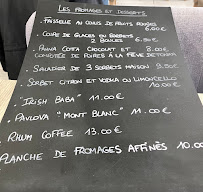 LES FROMAGES ET DESSERTS
- FAISSELLE AU COULIS DE FRUITS ROUGES
6.60€
- COUPE DE GLACES OU SORBETS
2 BOULES 6.80€
- PANNA COTTA CHOCOLAT ET 8.00€
COMPOTÉE DE POIRES À LA FÈVE DE TONKA
- SALADIER DE 3 SORBETS MAISON 9.80€
- SORBET CITRON ET VODKA OU LIMONCELLO
10.00€
- "IRISH BABA" 11.00€
- PAVLOVA "MONT BLANC" 11.00€
- RHUM COFFEE 13.00€
PLANCHE DE FROMAGES AFFINÉS 10.00